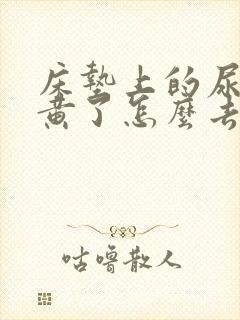 床墊上的尿
黄了怎麼去
咕噜散人